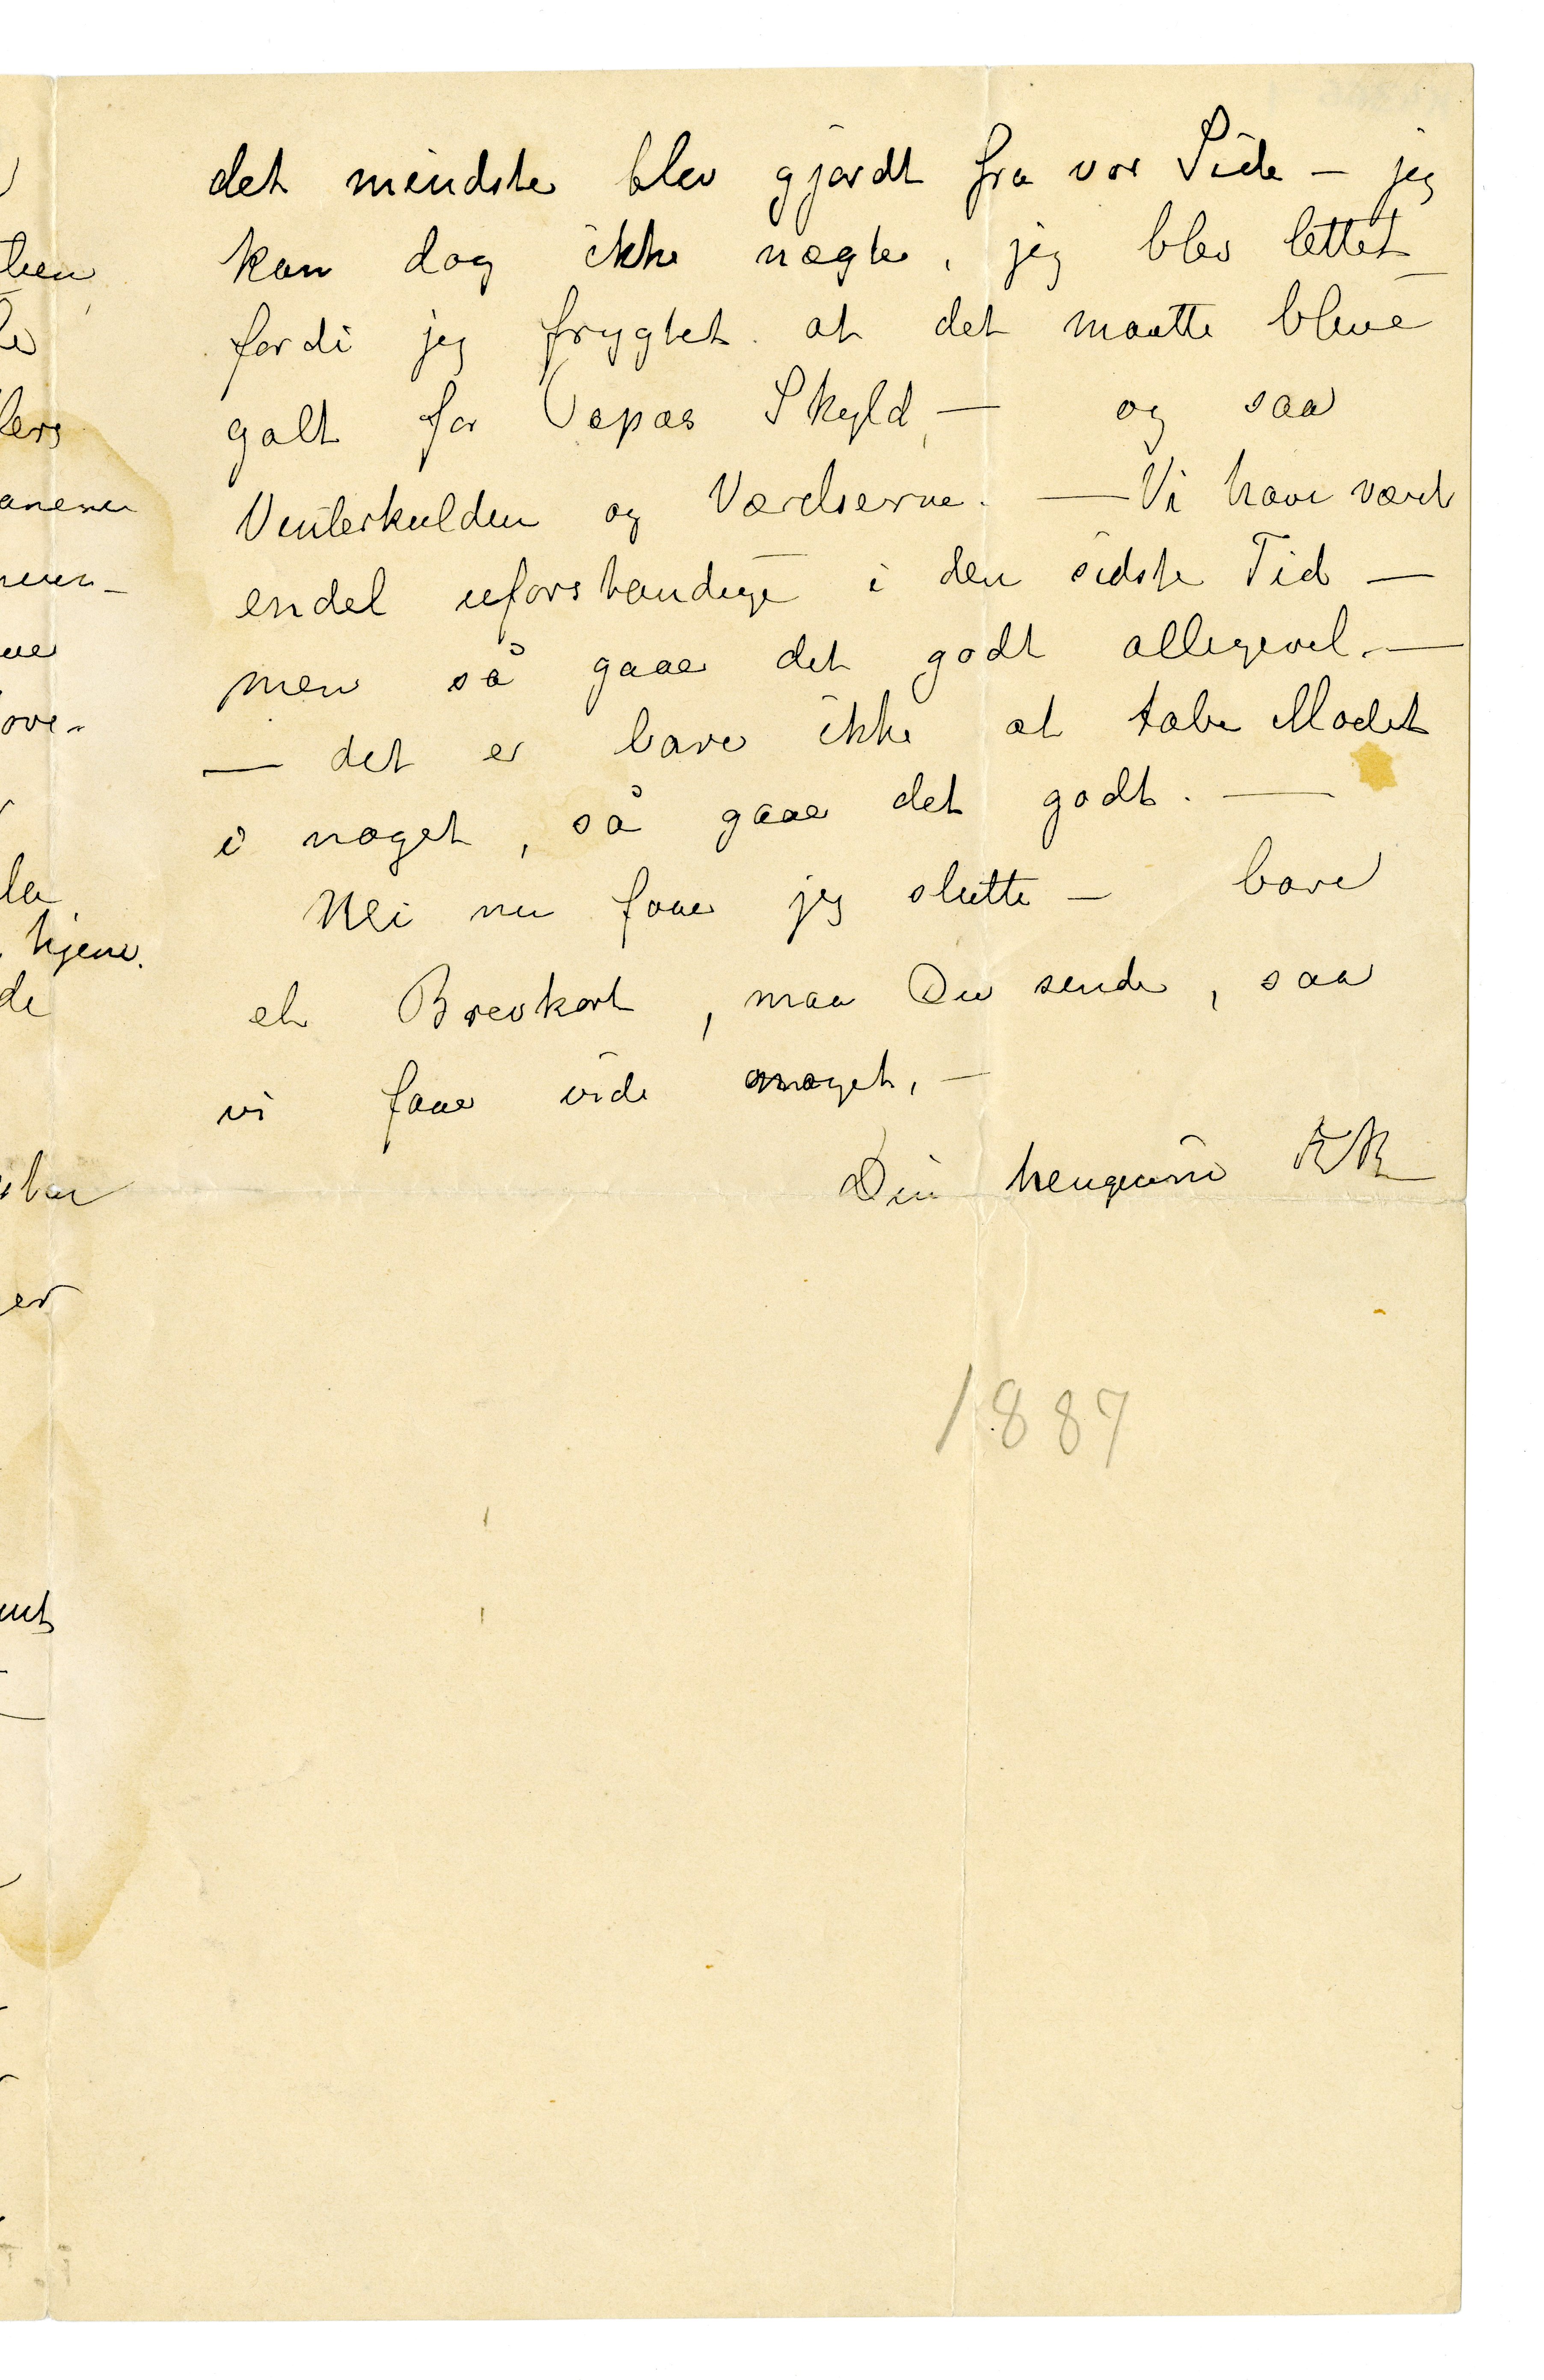 det mindste blev gjordt fra vor Side – jeg
kan dog ikke nægte, jeg blev lettet
fordi jeg frygtet at det maatte blive
galt for Papas Skyld, – og saa
Vinterkulden og Værelserne. — Vi have været
endel uforstandige i den sidste Tid —
men så gaaer det godt alligevel. —
— det er bare ikke at tabe Modet
i noget, så gaaer det godt. —
Nei nu faaer jeg slutte – bare
et Brevkort, maa Du sende, saa
vi faaer vide noget, –
Din hengivne KK
1887
hjem.